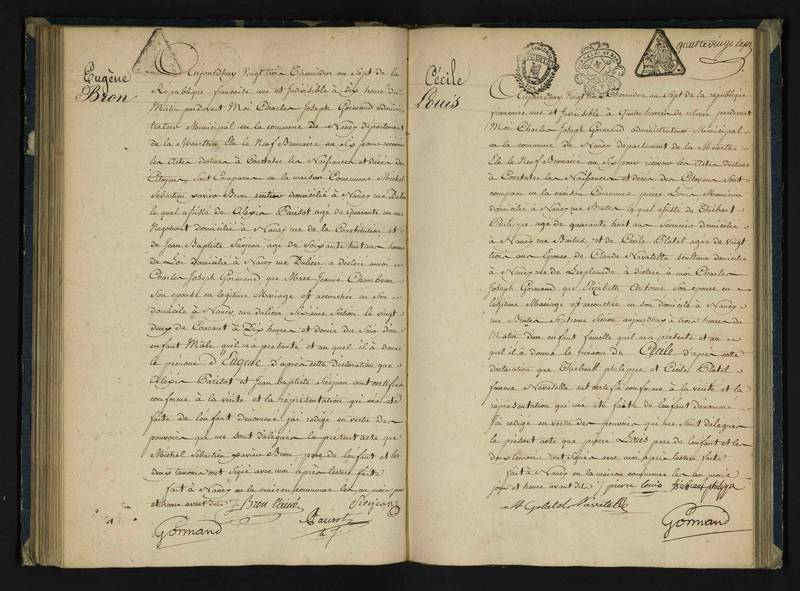 Eugène
Bron
Aujourdhuy Vingt trois Thermidor an Sept de la
République francaise une et indivisible à Dix heure du
Matin pardevant Moi Charles Joseph Gormand administ
trateur Municipal en la commune de Nancy département
de la Meurthe Elu le Neuf Brumaire an Six pour recevoir
les Actes destinés à Constater les Naissances et décès des
Citoyens Sont Comparus en la maison Commune Michel
Sébastien xavier Bron rentier domicilié à Nancy rue
le quel assisté de Alexis Parisot agé de Quarante un ans
Négotiant domicilié à Nancy rue de la Constitution et
de Jean Baptiste Sirejean agé de Soixante huit ans homme
de Loi Domicilié à Nancy rue a déclaré à moi
Charles Joseph Gormand que Marie Jeanne Chambeau
Son épouse en legitime Mariage est accouchée en Son
domicile à Nancy rue Sixième Section le vingt
deux du Courant à Dix heure et demie du Soir d'un
enfant Mâle qu'il m'a présenté et au quel il à donné
le prénom d'Eugène d'après cette déclaration que
Alexis Parisot et Jean baptiste Sirejean ont certifié
conforme à la vérité et la représentation qui m'a été
faite de l'enfant denommé j'ai redigé en vertu des
pouvoirs qui me Sont délégués le présent acte que
Michel Sébastien xavier Bron pere de l'enfant et les
deux témoins ont Signé avec moi après lecture faite
fait à Nancy en la maison commune les an mois jour
et heure avant dits Bron Sirejean
Parisot
Gormand
quatre vingt sept
Cécile
Louis
Aujourdhuy Vingt trois Thermidor an Sept de la république
francaise une et indivisible à heures de relevée pardevant
Moi Charles Joseph Gormand administrateur Municipal
en la commune de Nancy département de la Meurthe
Elu le Neuf Brumaire an Six pour recevoir les Actes destinés
à Constater les Naissances et décès des Citoyens Sont
comparu en la maison Commune pierre Louis
domicilié à Nancy rue le quel assisté de Thiebaut
Philippe agé de quarante huit ans domicilié
à Nancy rue et de Cécile Platel agée de vingt
trois ans Epouse de Claude Navatelle domicilié
à Nancy rue de Lesplanade à déclaré à moi Charles
Joseph Gormand que Elizabeth Antoine Son épouse en
legitime Mariage est accouchée en son domicile à Nancy
rue Septieme Section aujourdhuy à trois heures du
Matin d'un enfant femelle quil m'a présenté et au
quel il à donné le prenom de Cécile d'après cette
declaration que Thiebault philippe et Cécile Platel
femme Navatelle ont certifié conforme à la vérité et la
représentation qui m'a été faite de lenfant denommé
J'ai redigé en vertu des pouvoirs qui me Sont délégués
le présent acte que pierre Louis pere de lenfant et les
deux témoins ont Signé avec moi après lecture faite
fait à Nancy en la maison commune les an mois
jour et heure avant dits pierre Louis philippe
Navatelle
Gormand